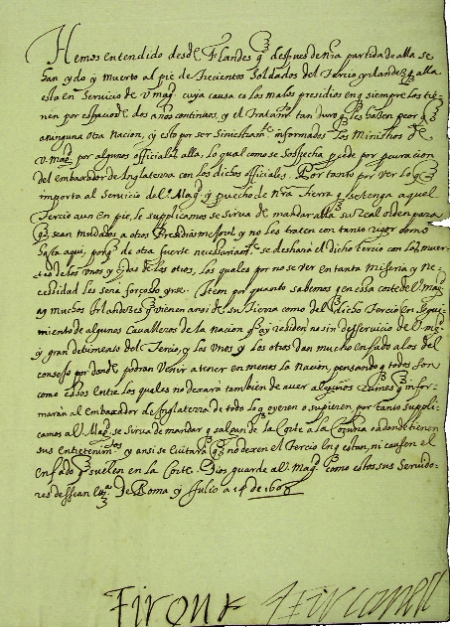 Hemos entendido desde Flandes q̃ despues de nr̃a partida de alla se
han ydo y muerto al pie de trecientos soldados del Tercio yrlandes q̃ alla
esta en servicio de V. magᵈ cuya causa es los malos presidios en q̃ siempre los tie
nen por espacio de dos años continuos, y el tratamᵗᵒ tan duro q̃ les hazen peor q̃
a ninguna otra nacion, y esto por ser siniestramᵗᵉ informados los Ministros de
V. magᵈ por algunos officiales alla, lo qual como se sospecha procede por procuracion
del embaxador de Inglaterra con los dichos officiales. Por tanto por ver lo q̃
importa al servicio de V. Magᵈ y provecho de nr̃a Tierra q̃ se tenga aquel
Tercio aun en pie, le supplicamos se sirva de mandar alla su real orden para
q̃ sean mudados a otros presidios mejores y no les traten con tanto rigor como
hasta aqui, porq̃ de otra suerte necessariamᵗᵉ se deshara el dicho tercio con las muer
tes de los unos y ydas de los otros, los quales por no se ver en tanta miseria y ne
cessidad les sera forçoso yrse. Item por quanto sabemos q̃ en essa corte de V. magᵈ
ay muchos Irlandeses q̃ vienen ansi de su tierra como del dicho Tercio en segui
miento de algunos cavalleros de la nacion q̃ ay residen no sin desservicio de V. mgᵈ
y gran detrimento del Tercio, y los unos y los otros dan mucho enfado a los del
consejo por donde podran venir a tener en menos la nacion, pensando q̃ todos son
como essos entre los quales no dexara tambien de aver algunos ruines q̃ infor
maran al embaxador de Inglaterra de todo lo q̃ oyeren o supieren, por tanto suppli
camos a V. Magᵈ se sirva de mandar q̃ salgan de la Corte a la Coruña o adonde tienen
sus entretenimᵗᵒˢ y ansi se evitara q̃ no dexen el Tercio en q̃ estan, ni causen el
enfado q̃ suelen en la corte. Dios guarde a V. Magᵈ como estos sus servido
res dessean De Roma y Julio a 1608
Tirone Tirconell